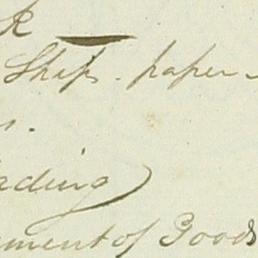 k
Ships. paper-
s.
ading
ement of Goods